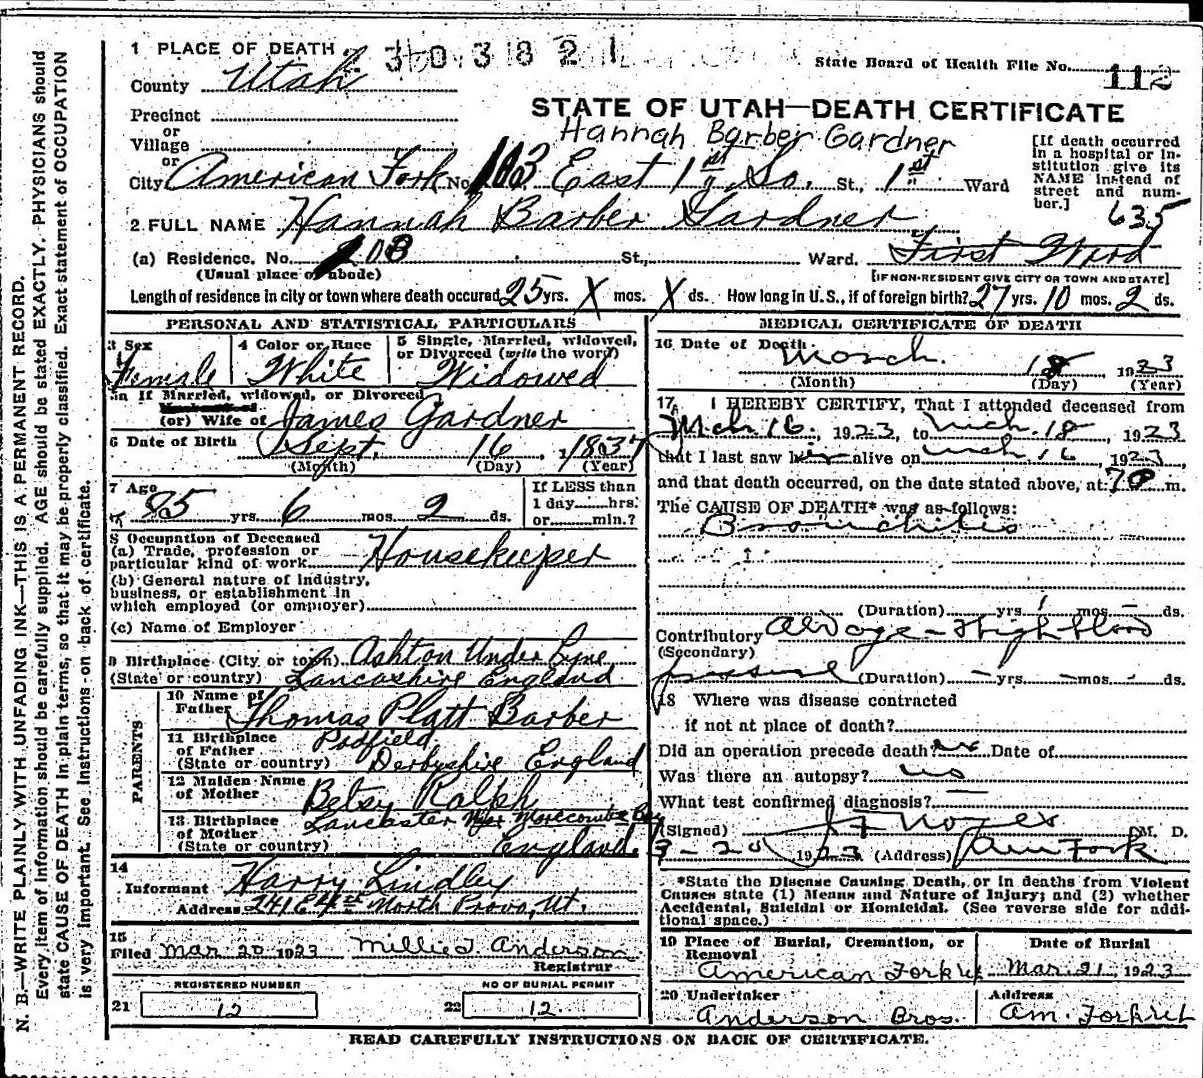 1 PLACE OF DEATH 2 3 0 3 8 2 1
State Board of Health File No. 112
County Utah
STATE OF UTAH—DEATH CERTIFICATE
Precinct
Hannah Barber Gardner
or
Village
or
City American Fork No. 103 East 1st So. St., 1st Ward
[If death occurred in a hospital or institution give its NAME instead of street and number.]
635
2 FULL NAME Hannah Barber Gardner
(a) Residence. No. 203 St., Ward. First Ward
(Usual place of abode)
[IF NON-RESIDENT GIVE CITY OR TOWN AND STATE]
Length of residence in city or town where death occured 25 yrs. X mos. X ds. How long in U.S., if of foreign birth? 27 yrs. 10 mos. 2 ds.
PERSONAL AND STATISTICAL PARTICULARS
3 Sex
Female
4 Color or Race
White
5 Single, Married, widowed, or Divorced (write the word)
Widowed
5a If Married, widowed, or Divorced
(or) Wife of James Gardner
6 Date of Birth Sept. 16 1837
(Month) (Day) (Year)
7 Age
85 yrs. 6 mos. 2 ds.
If LESS than
1 day......hrs.
or......min.?
8 Occupation of Deceased
(a) Trade, profession or
particular kind of work Housekeeper
(b) General nature of industry,
business, or establishment in
which employed (or employer)
(c) Name of Employer
9 Birthplace (City or town) Ashton Under Lyne
(State or country) Lancashire England
PARENTS
10 Name of
Father Thomas Platt Barber
11 Birthplace
of Father Padfield
(State or country) Derbyshire England
12 Maiden Name
of Mother Betsy Ralph
13 Birthplace
of Mother Lancaster Near Morecombe Bay
(State or country) England
14
Informant Harry Lindley
Address 241 E 4th North Provo, Ut.
15
Filed Mar 20 1923 Millie T. Anderson
Registrar
REGISTERED NUMBER
21 12
NO OF BURIAL PERMIT
22 12
MEDICAL CERTIFICATE OF DEATH
16 Date of Death March. 18 1923
(Month) (Day) (Year)
17 I HEREBY CERTIFY, That I attended deceased from
Mch 16, 1923, to Mch. 18, 1923
that I last saw her alive on Mch 16, 1923,
and that death occurred, on the date stated above, at 7 P m.
The CAUSE OF DEATH* was as follows:
Bronchitis
(Duration) yrs. 1 mos. – ds.
Contributory Old age – High blood
(Secondary)
pressure (Duration) – yrs. – mos. – ds.
18 Where was disease contracted
if not at place of death?
Did an operation precede death? no Date of
Was there an autopsy? no
What test confirmed diagnosis?
(Signed) J F Noyes M. D.
3-20 1923 (Address) Am Fork
*State the Disease Causing Death, or in deaths from Violent
Causes state (1) Means and Nature of Injury; and (2) whether
Accidental, Suicidal or Homicidal. (See reverse side for additional space.)
19 Place of Burial, Cremation, or Removal
American Fork Ut
Date of Burial
Mar. 21, 1923
20 Undertaker
Anderson Bros.
Address
Am. Fork Ut
READ CAREFULLY INSTRUCTIONS ON BACK OF CERTIFICATE.
N. B.—WRITE PLAINLY WITH UNFADING INK—THIS IS A PERMANENT RECORD.
Every item of information should be carefully supplied. AGE should be stated EXACTLY. PHYSICIANS should
state CAUSE OF DEATH in plain terms, so that it may be properly classified. Exact statement of OCCUPATION
is very important. See instructions on back of certificate.